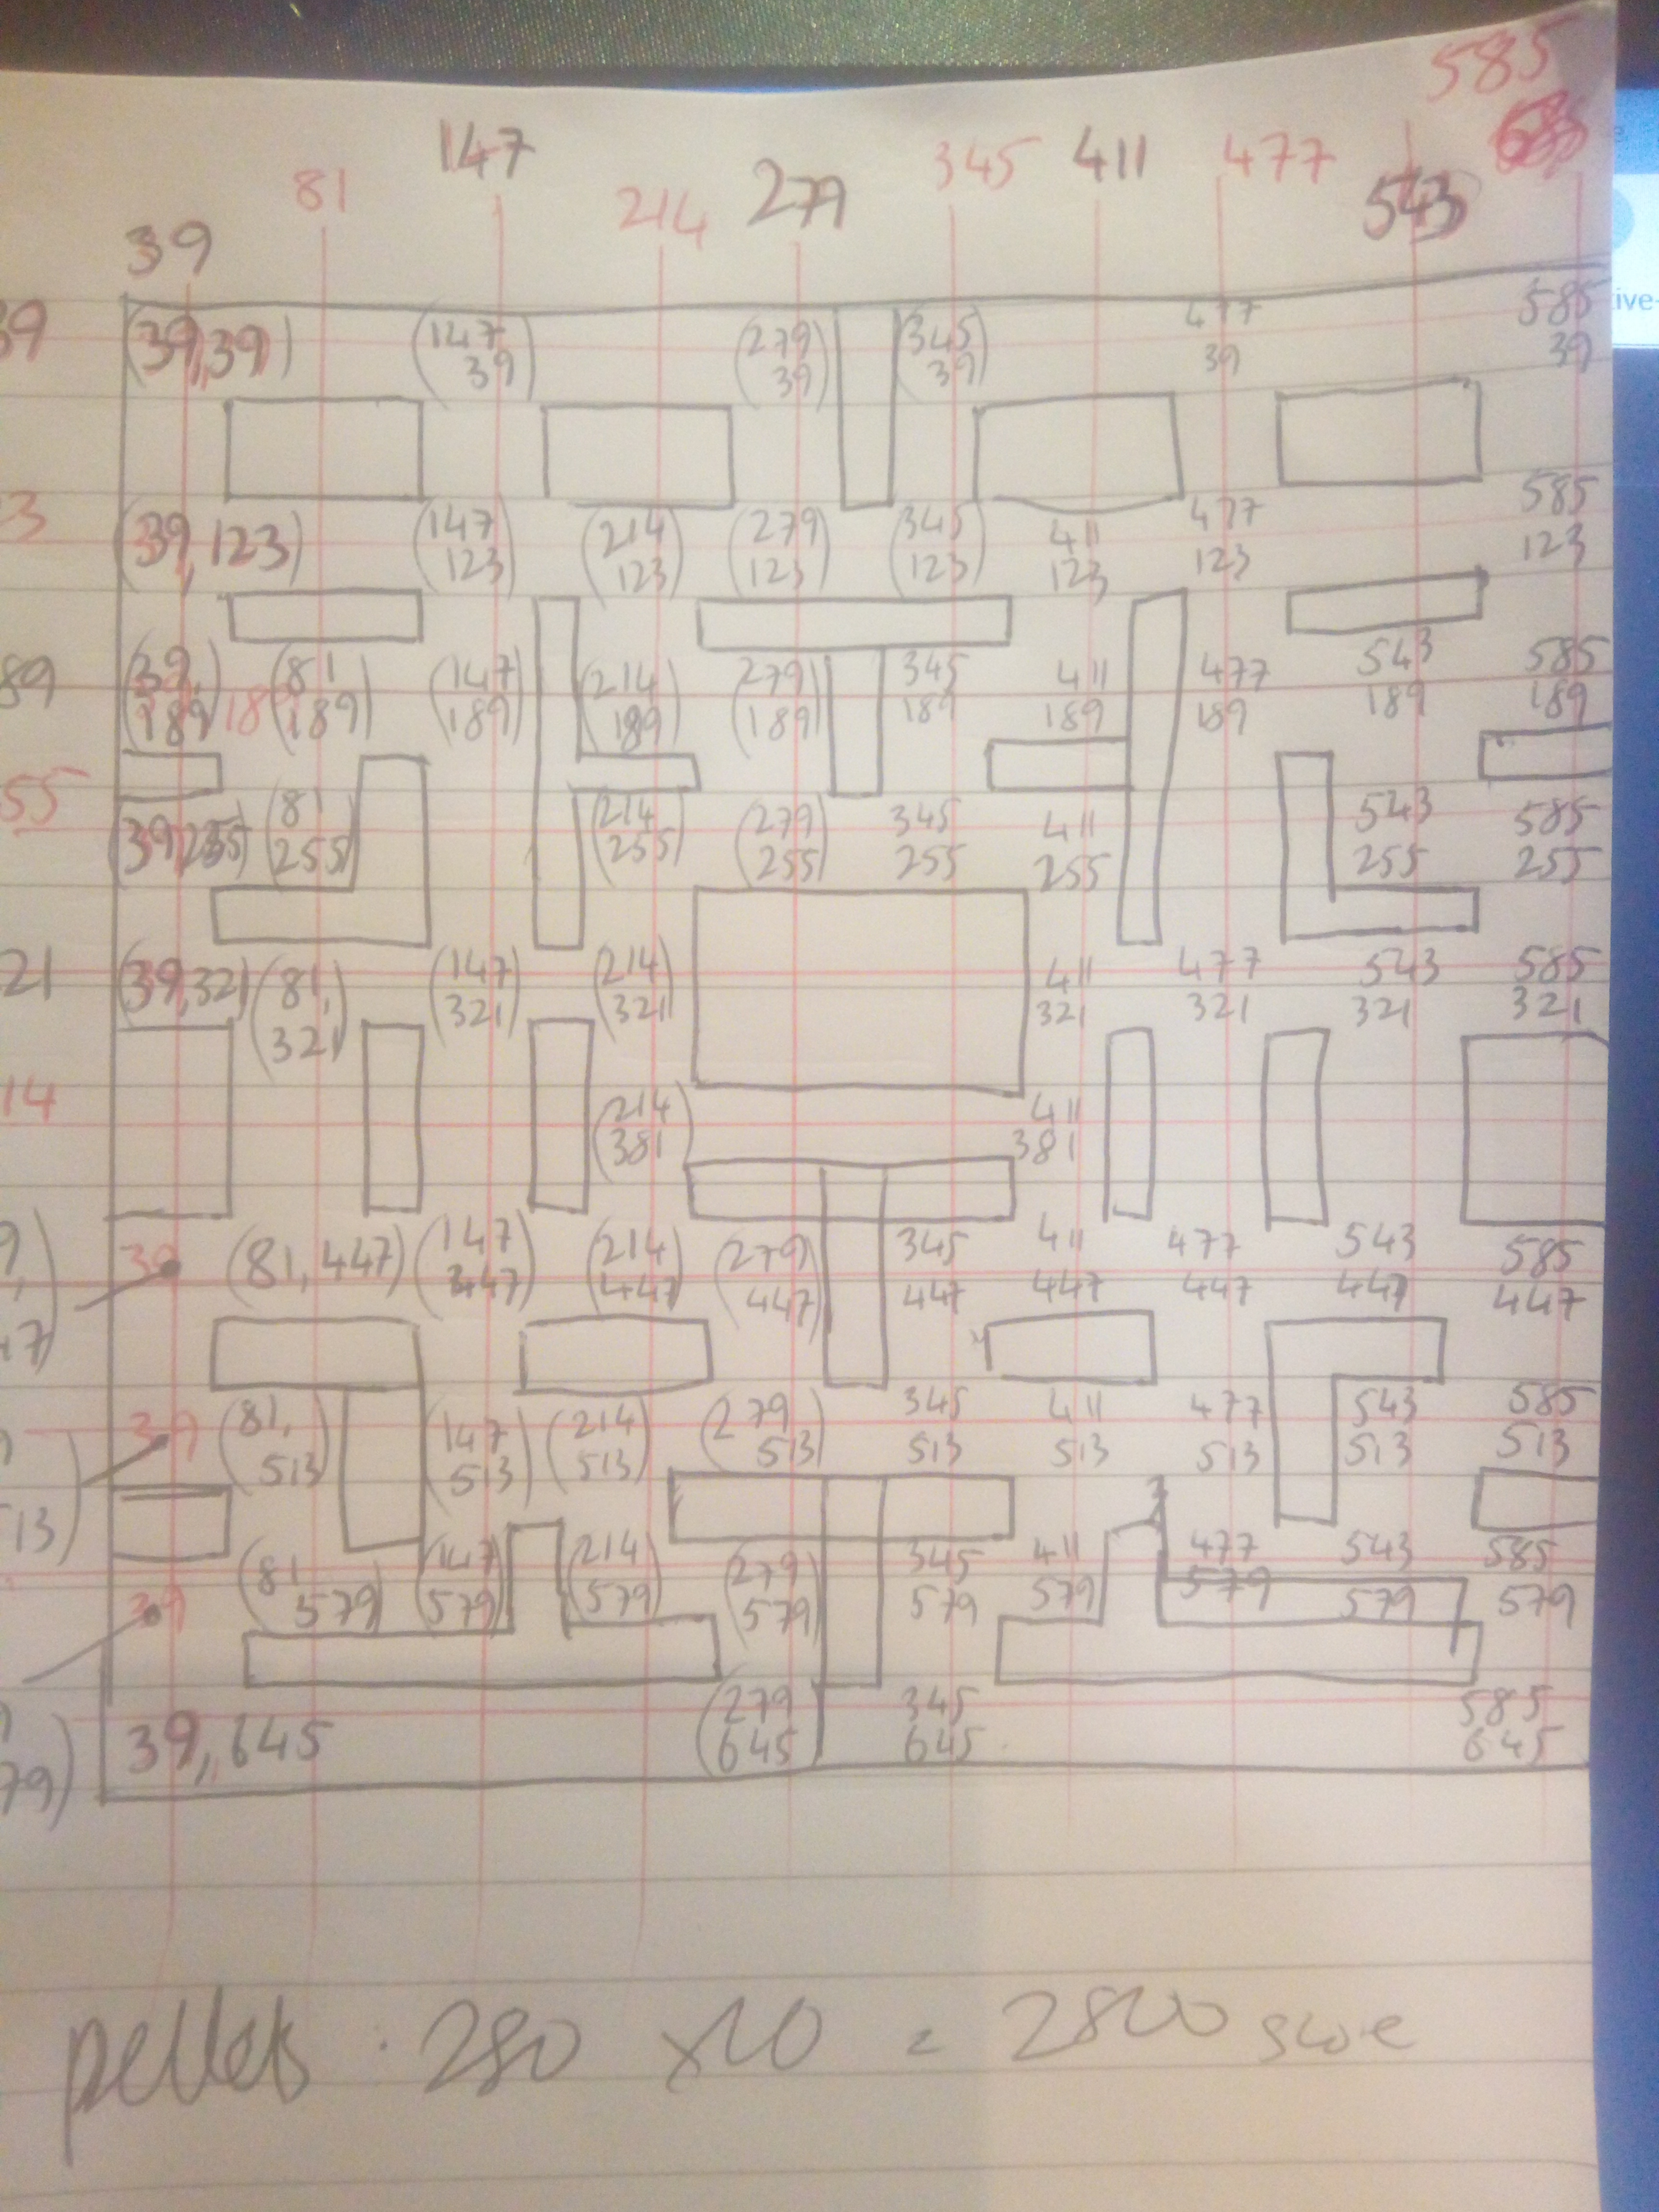 585
147 345 411 477
81 214 279 543
39
39 (39,39) (147 39) (279 39) (345 39) 477 39 585 39
3 (39,123) (147 123) (214 123) (279 123) (345 123) 411 123 477 123 585 123
89 (39, 189) 189 (81 189) (147 189) (214 189) (279 189) 345 189 411 189 477 189 543 189 585 189
55 (39,255) (81 255) (214 255) (279 255) 345 255 411 255 543 255 585 255
21 (39,321) (81, 321) (147 321) (214 321) 411 321 477 321 543 321 585 321
14 (214 381) 411 381
9, 47) 39 (81,447) (147 447) (214 447) (279 447) 345 447 411 447 477 447 543 447 585 447
13) 39 (81, 513) (147 513) (214 513) (279 513) 345 513 411 513 477 513 543 513 585 513
79) 39 (81 579) (147 579) (214 579) (279 579) 345 579 411 579 477 579 543 579 585 579
39,645 (279 645) 345 645 585 645
pellets : 280 x10 = 2800